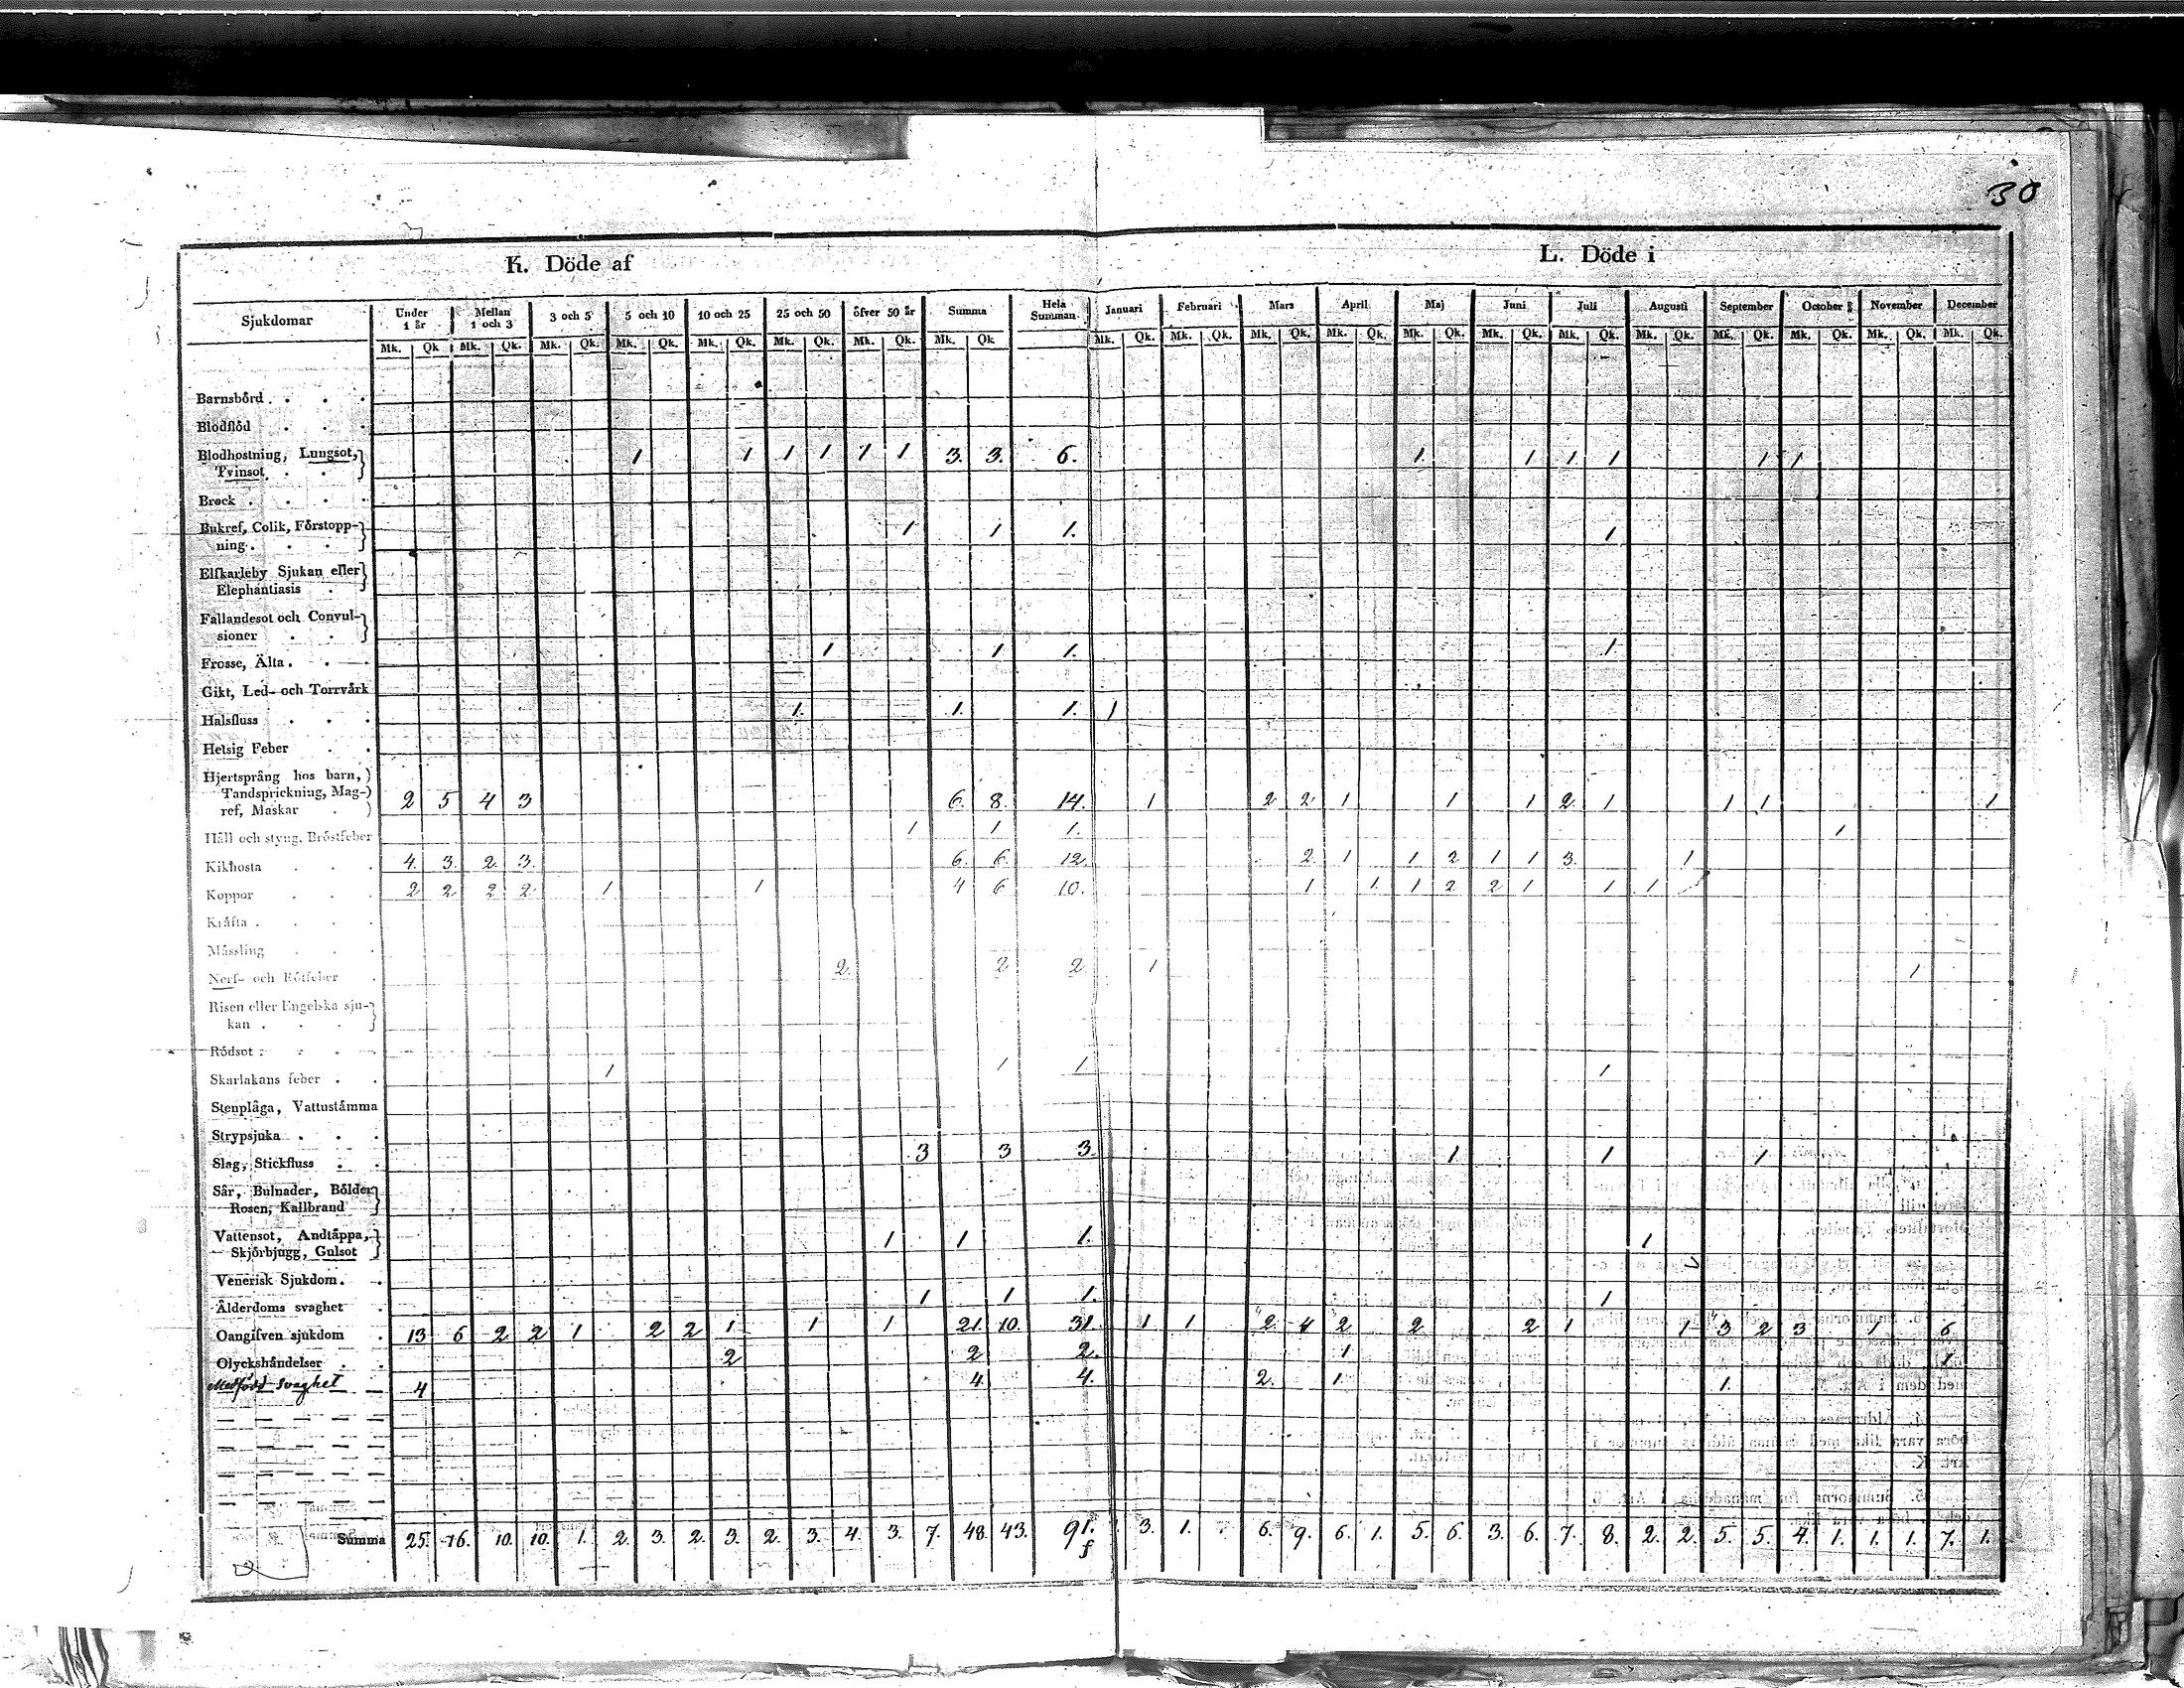 30
K. Döde af
L. Döde i
Sjukdomar Under 1 år Mellan 1 och 3 3 och 5 5 och 10 10 och 25 25 och 50 öfver 50 år Summa Hela Summan Januari Februari Mars April Maj Juni Juli Augusti September October November December
Mk. Qk Mk. Qk. Mk. Qk. Mk. Qk. Mk. Qk. Mk. Qk. Mk. Qk. Mk. Qk Mk. Qk. Mk. Qk. Mk. Qk. Mk. Qk. Mk. Qk. Mk. Qk. Mk. Qk. Mk. Qk. Mk. Qk. Mk. Qk. Mk. Qk. Mk. Qk.
Barnsbörd
Blodflöd
Blodhostning, Lungsot,
Tvinsot 1 1 1 1 1 1 3. 3. 6. 1. 1 1. 1 1 1
Brock
Bukref, Colik, Förstopp-
ning 1 1 1. 1
Elfkarleby Sjukan eller
Elephantiasis
Fallandesot och Convul-
sioner
Frosse, Älta 1 1 1. 1
Gikt, Led- och Torrvärk
Halsfluss 1. 1. 1. 1
Hetsig Feber
Hjertsprång hos barn,
Tandsprickning, Mag-
ref, Maskar 2 5 4 3 6. 8. 14. 1 2 2 1 1 1 2 1 1 1 1
Håll och styng, Bröstfeber 1 1 1. 1
Kikhosta 4. 3. 2. 3. 6. 6. 12. 2 1 1 2 1 1 3. 1
Koppor 2 2 2 2 1 1 4 6 10. 1 1. 1 2 2 1 1 1
Kräfta
Mässling
Nerf- och Rötfeber 2 2 2 1 1
Risen eller Engelska sju-
kan
Rödsot
Skarlakans feber 1 1 1 1
Stenplåga, Vattustämma
Strypsjuka
Slag, Stickfluss 3 3 3. 1 1 1
Sår, Bulnader, Bölder
Rosen, Kallbrand
Vattensot, Andtäppa,
Skjörbjugg, Gulsot 1 1 1. 1
Venerisk Sjukdom
Ålderdoms svaghet 1 1 1. 1
Oangifven sjukdom 13 6 2 2 1 2 2 1 1 1 21. 10. 31. 1 1 2 4 2 2 2 1 1 3 2 3 1 6
Olyckshändelser 2 2 2. 1 1
Medfödd svaghet 4 4. 4. 2. 1. 1.
Summa 25. 16. 10. 10. 1. 2. 3. 2. 3. 2. 3. 4. 3. 7. 48. 43. 91. 3. 1. 6. 9. 6. 1. 5. 6. 3. 6. 7. 8. 2. 2. 5. 5. 4. 1. 1. 1. 7. 1.